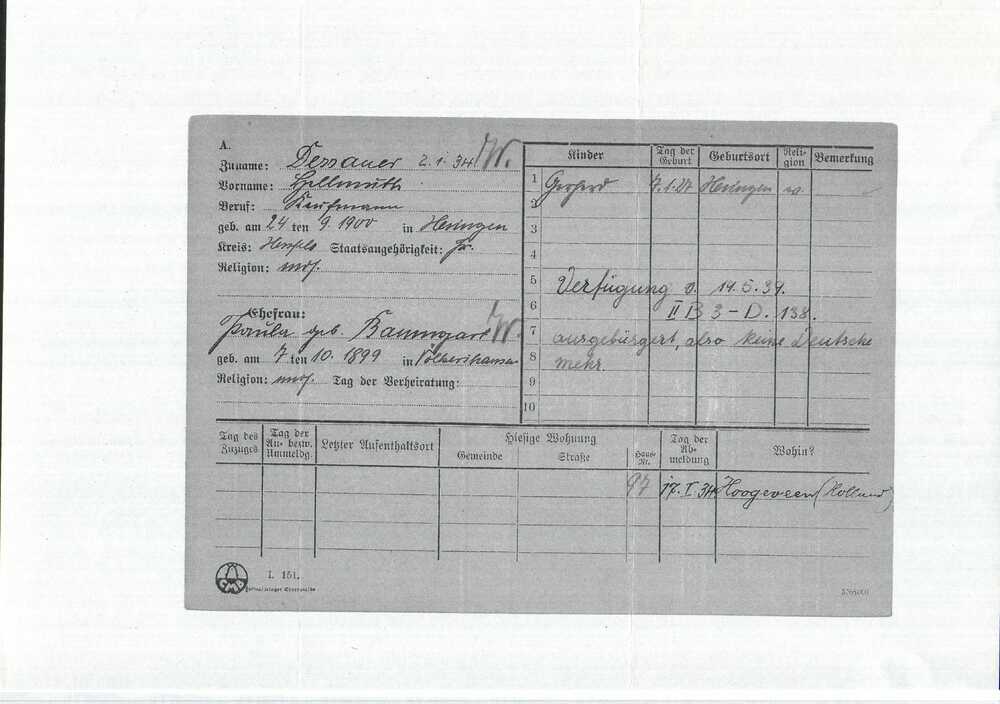 A.
Zuname: Dessauer 2.1.34 W.
Vorname: Hellmuth
Beruf: Kaufmann
geb. am 24 ten 9. 1900 in Heringen
Kreis: Hersfeld Staatsangehörigkeit: Pr.
Religion: mos.
Ehefrau: W.
Paula geb. Baumgart
geb. am 7 ten 10. 1899 in Völkershausen
Religion: mos. Tag der Verheiratung:
Kinder Tag der Geburt Geburtsort Reli-gion Bemerkung
1 Gerhard 7.1.27 Heringen
2
3
4
5 Verfügung v. 14.5.39.
6 II B 3 – D. 138.
7 ausgebürgert, also keine Deutsche
8 mehr.
9
10
Tag des Zuzuges Tag der An- bezw. Ummeldg. Letzter Aufenthaltsort Hiesige Wohnung Gemeinde Straße Haus-Nr. Tag der Ab-meldung Wohin?
97 17.I.34 Hoogeveen (Holland)
I. 151.